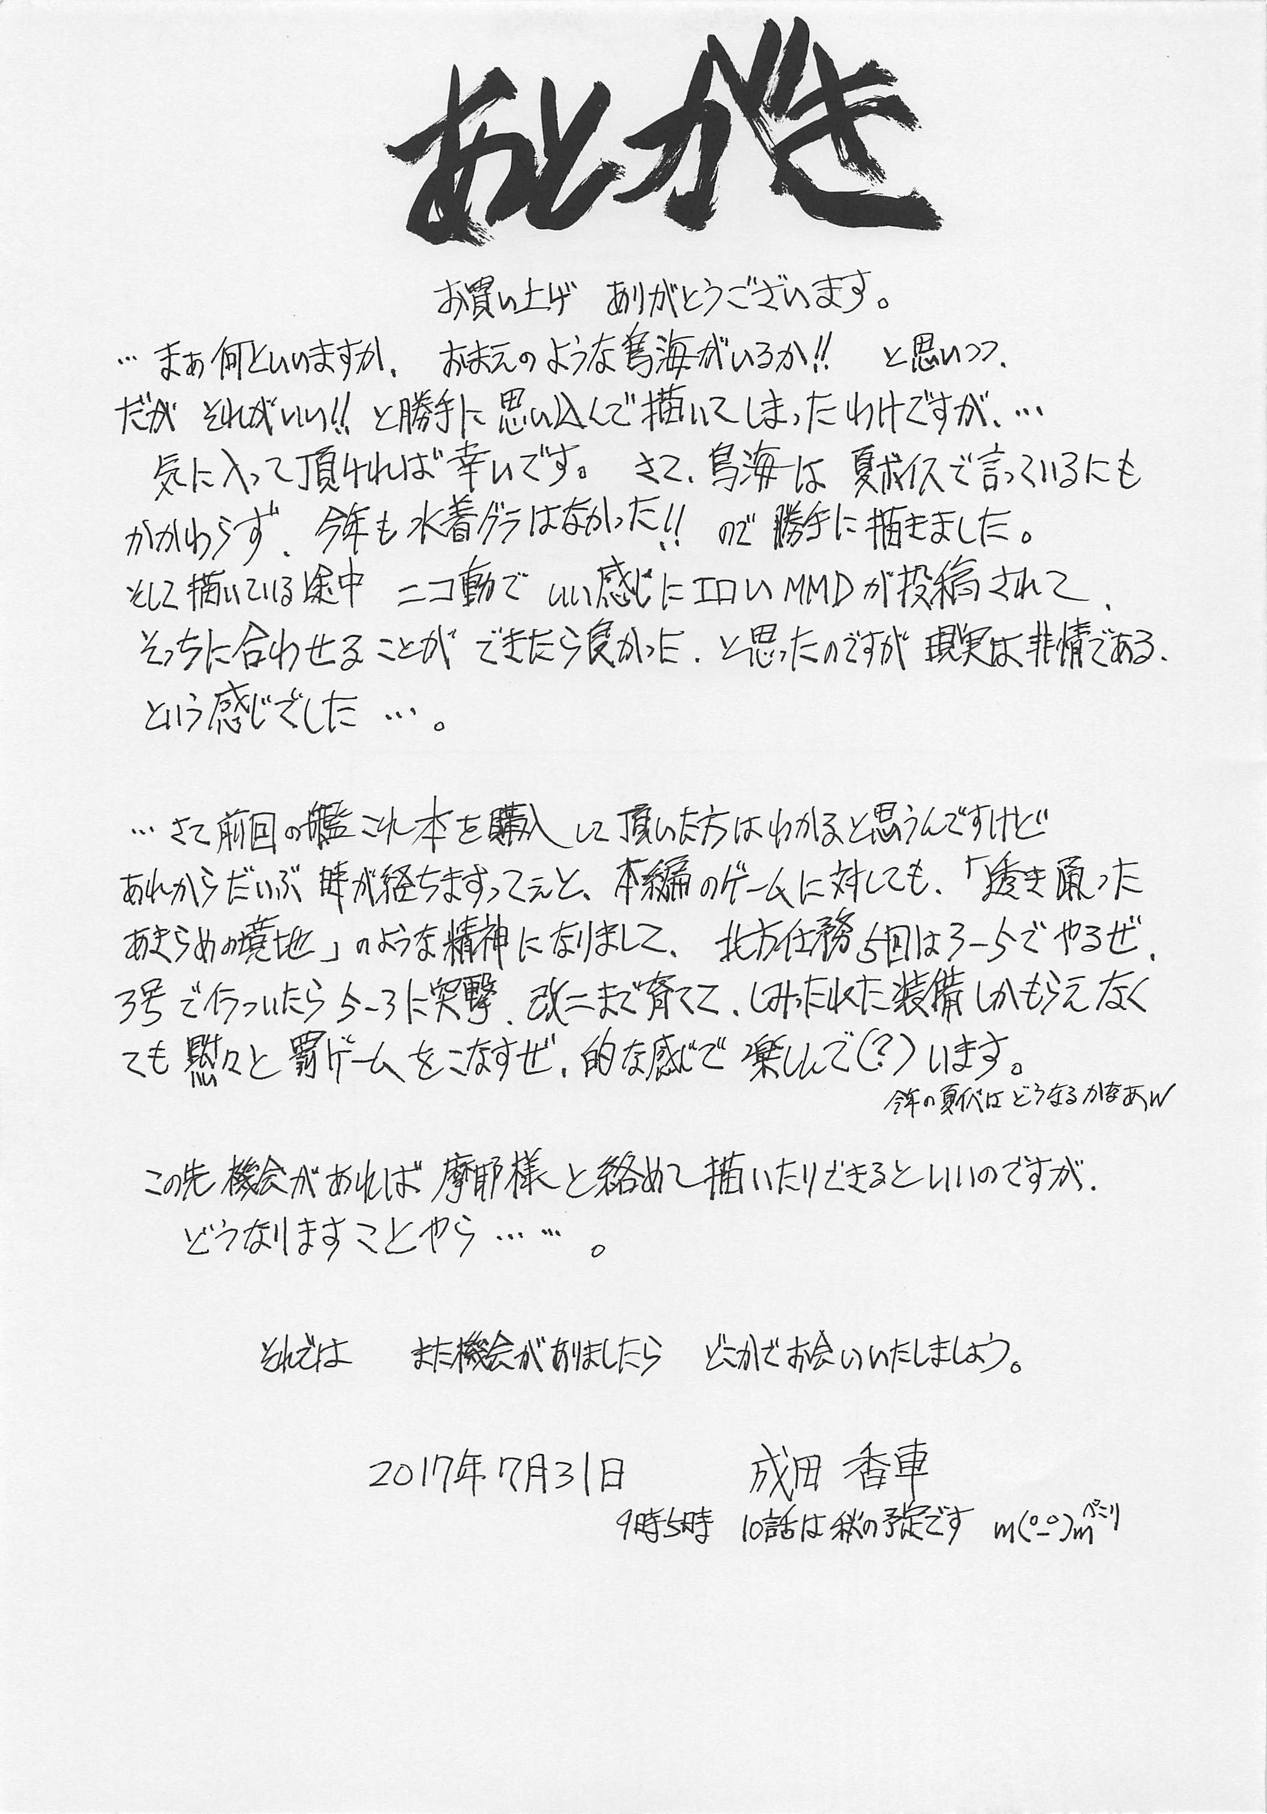 あとがき
お買い上げ ありがとうございます。
…まぁ何といいますか、 おまえのような鳥海がいるか!! と思いつつ、
だが それがいい!! と勝手に思い込んで描いてしまったわけですが、…
気に入って頂ければ幸いです。 さて、鳥海は 夏ボイスで言っているにも
かかわらず、今年も水着グラはなかった!! ので 勝手に描きました。
そして描いている途中 ニコ動で いい感じにエロいMMDが投稿されて、
そっちに合わせることが できたら良かった、と思ったのですが 現実は非情である、
という感じでした…。
…さて前回の艦これ本を購入して頂いた方はわかると思うんですけど
あれからだいぶ時が経ちますってぇと、本編のゲームに対しても、「透き通った
あきらめの境地」のような精神になりまして、 北方任務5回は3-5でやるぜ、
3号でイラついたら5-3に突撃、改二まで育てて、しみったれた装備しかもらえなく
ても黙々と罰ゲームをこなすぜ、的な感じで 楽しんで(?)います。
今年の夏イベはどうなるかなあw
この先 機会があれば 摩耶様と絡めて描いたりできるといいのですが、
どうなりますことやら……。
それでは また機会がありましたら どこかでお会いいたしましょう。
2017年7月31日 成田 香車
9時5時 10話は秋の予定です m(°_°)m ペこり